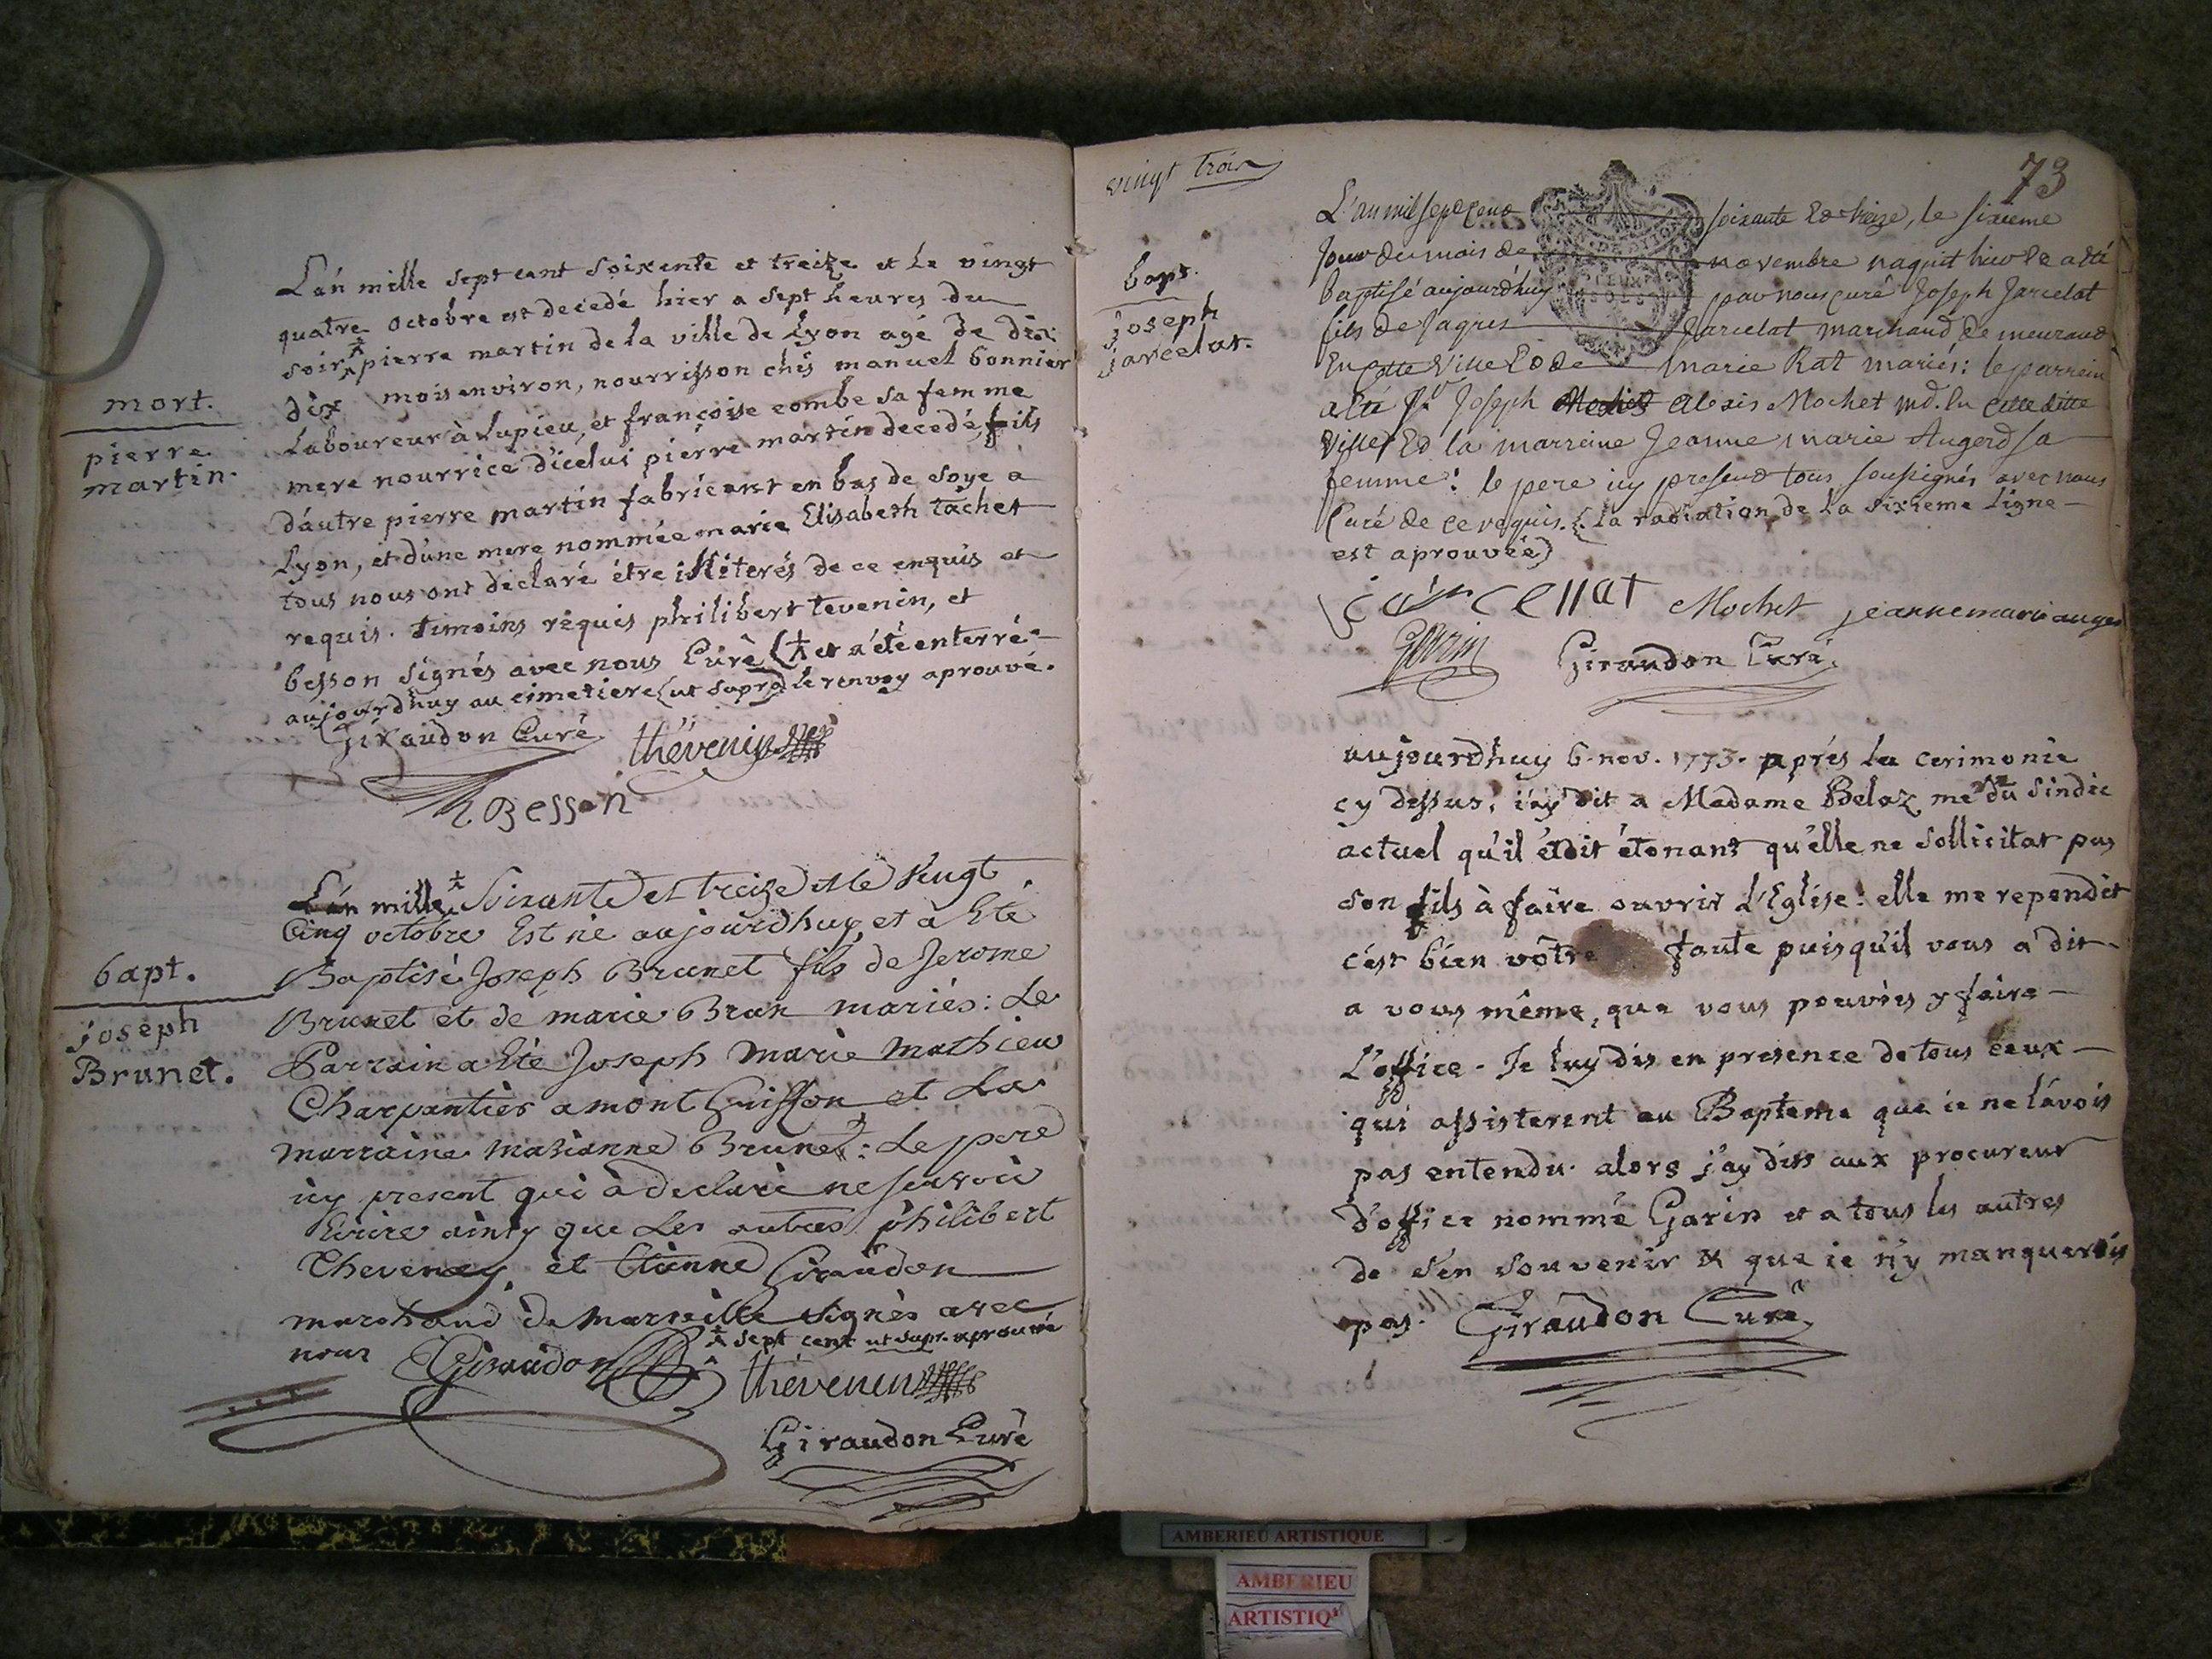 mort.
pierre
martin.
L'an mille sept cent soixente et treize et le vingt
quatre octobre est decedé hier a sept heures du
soir ⁂ pierre martin de la ville de Lyon agé de dix
dix mois environ, nourrisson chés manuel bonnier
Laboureur à Lupieu, et françoise combe sa femme
mere nourrice d'icelui pierre martin decedé, fils
d'autre pierre martin fabricant en bas de soye a
Lyon, et d'une mere nommée marie Elisabeth tachet
tous nous ont declaré être illiterés de ce enquis et
requis. temoins requis philibert tevenin, et
besson signés avec nous Curé (⁂ et a été enterré
aujourdhuy au cimetiere (ut supra) le renvoy aprouvé.
Giraudon Curé thévenin
Besson
bapt.
joseph
Brunet.
L'an mille ⁂ Soixante et treize et le Vingt
Cinq octobre Est né aujourdhuy, et à Eté
Baptisé Joseph Brunet fils de Jerome
Brunet et de marie Brun mariés: Le
Parrain a Eté Joseph Marie Mathieu
Charpantier a mont Griffon et La
marraine Marianne Brunet: Le pere
icy present qui à declaré ne scavoir
Ecrire ainsy que Les autres philibert
Theveney et Etienne Giraudon
marchand de Marseille signés avec
nous ⁂ sept cent ut supr. aprouvé
Giraudon thévenin
Giraudon Curé
vingt trois
73
bapt.
joseph
jarcelat.
L'an mil sept cent soixante et treize, le sixieme
Jour du mois de novembre naquit hier et a été
baptisé aujourdhuy par nous curé Joseph Jarcelat
fils de Jaques Jarcelat marchand demeurant
En Cette Ville Et de marie Rat mariés: le parrein
a été Sr Joseph Alexis Mochet md. en Cette ditte
Ville Et la marreine Jeanne marie Augerd sa
femme: le pere icy present tous soussignés avec nous
Curé de ce requis. (La radiation de la sixieme ligne
est aprouvée)
jarcellat Mochet jeanne marie auger
Garin Giraudon Curé
aujourdhuy 6. nov. 1773. après la cerimonie
cy dessus, i'ay dit a Madame Beloz me du Sindic
actuel qu'il étoit étonant qu'elle ne sollicitat pas
son fils à faire ouvrir L'Eglise: elle me repondit
c'est bien vôtre faute puisqu'il vous a dit
a vous même, que vous pouviés y faire
L'office. Je luy dis en presence de tous ceux
qui assisterent au Bapteme que ie ne l'avois
pas entendu. alors j'ay diss aux procureur
d'office nommé Garin et a tous les autres
de s'en souvenir & que ie n'y manquerois
pas. Giraudon Curé
AMBERIEU ARTISTIQUE
AMBERIEU
ARTISTIQ